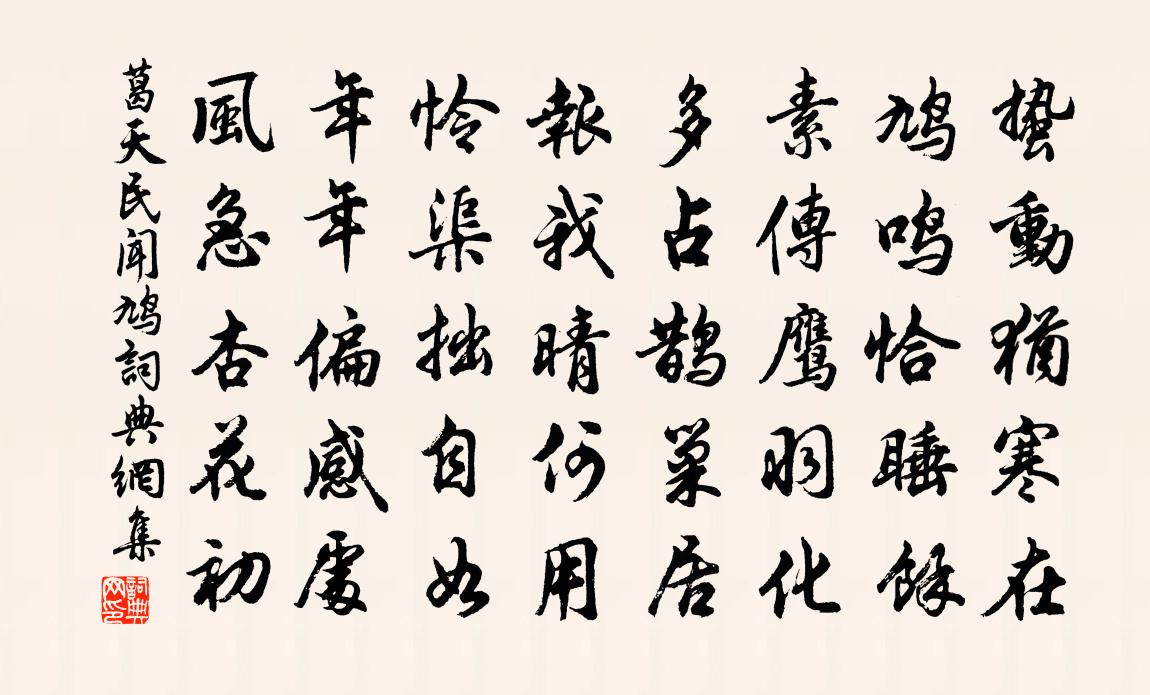 蟄動猶寒在
鳩鳴恰睡餘
素傳鷹羽化
多占鵲巢居
報我晴何用
憐渠拙自如
年年偏感處
風急杏花初
葛天民聞鳩詞典網集
詞典
网印